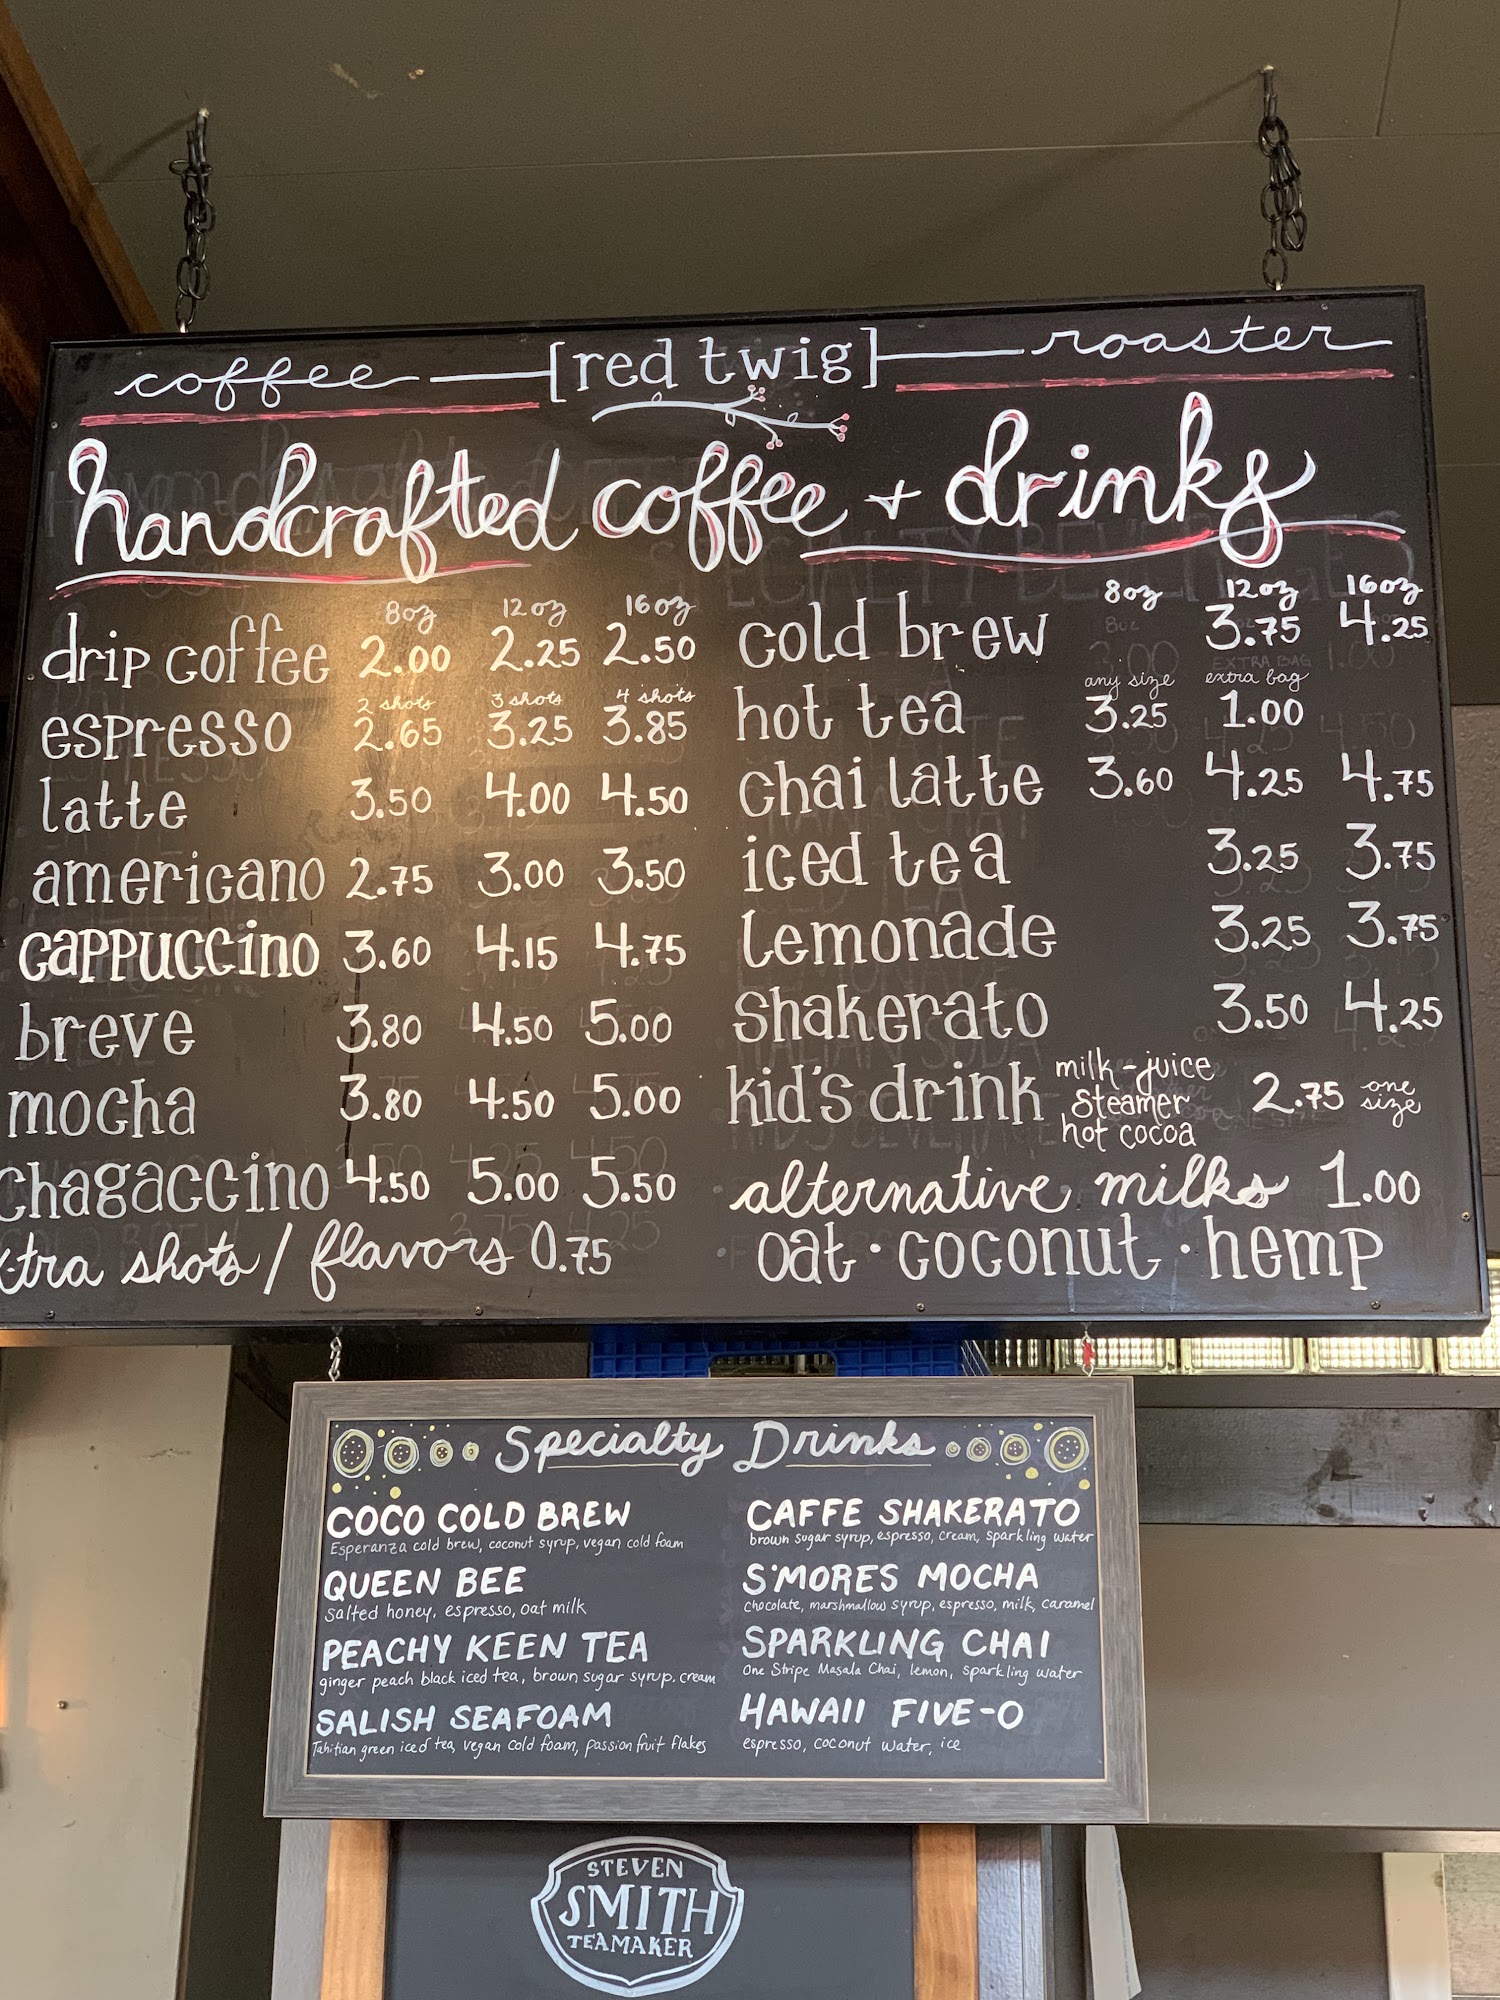 coffee [red twig] roaster
handcrafted coffee + drinks
8oz 12oz 16oz
drip coffee 2.00 2.25 2.50
2 shots 3 shots 4 shots
espresso 2.65 3.25 3.85
latte 3.50 4.00 4.50
americano 2.75 3.00 3.50
cappuccino 3.60 4.15 4.75
breve 3.80 4.50 5.00
mocha 3.80 4.50 5.00
chagaccino 4.50 5.00 5.50
xtra shots / flavors 0.75
8oz 12oz 16oz
cold brew 3.75 4.25
any size extra bag
hot tea 3.25 1.00
chai latte 3.60 4.25 4.75
iced tea 3.25 3.75
lemonade 3.25 3.75
shakerato 3.50 4.25
kid's drink milk-juice steamer hot cocoa 2.75 one size
alternative milks 1.00
oat · coconut · hemp
Specialty Drinks
COCO COLD BREW
Esperanza cold brew, coconut syrup, vegan cold foam
QUEEN BEE
salted honey, espresso, oat milk
PEACHY KEEN TEA
ginger peach black iced tea, brown sugar syrup, cream
SALISH SEAFOAM
Tahitian green iced tea, vegan cold foam, passion fruit flakes
CAFFE SHAKERATO
brown sugar syrup, espresso, cream, sparkling water
S'MORES MOCHA
chocolate, marshmallow syrup, espresso, milk, caramel
SPARKLING CHAI
One Stripe Masala Chai, lemon, sparkling water
HAWAII FIVE-O
espresso, coconut water, ice
STEVEN
SMITH
TEAMAKER